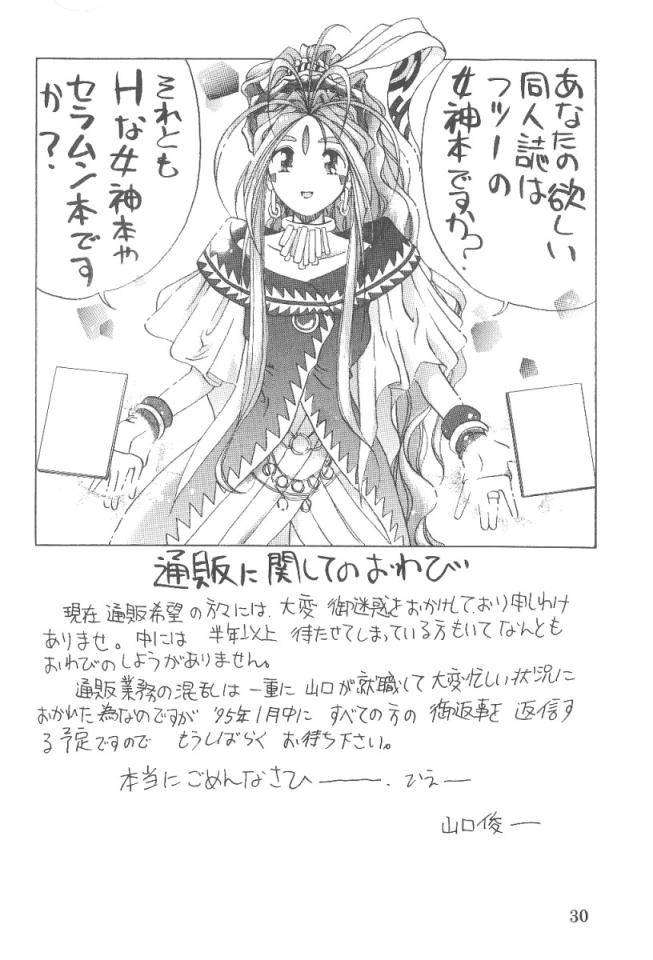 あなたの欲しい
同人誌は
フツーの
女神本ですか?
それとも
Hな女神本や
セラムン本です
か?
通販に関してのおわび
現在通販希望の方々には、大変御迷惑をおかけしており申しわけ
ありませ。中には 半年以上 待たせてしまっている方もいてなんとも
おわびのしようがありません。
通販業務の混乱は一重に山口が就職して大変忙しい状況に
おかれた為なのですが '95年1月中に すべての方の 御返事を 返信す
る予定ですので もうしばらく お待ち下さい。
本当にごめんなさひ———.ひえー
山口俊一
30